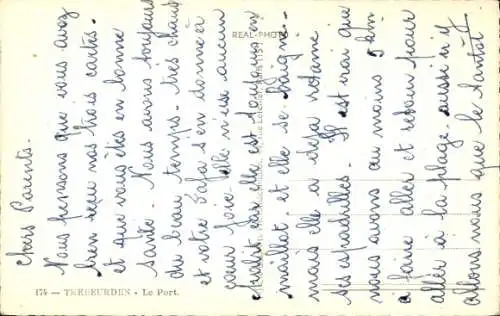 Chers Parents.
Nous pensons que vous avez
bien reçu nos trois cartes.
et que vous êtes en bonne
santé. Nous avons toujours
du beau temps. très chaud
et votre Zaza s'en donne à
cœur joie. elle n'use aucun
habit car elle est toujours en
maillot et elle se baigne.
mais elle a déjà retame
ses espadrilles. Il est vrai que
nous avons au moins 5 km
à faire aller et retour pour
aller à la plage. aussi n'y
allons nous que le tantôt
REAL-PHOTO
174 - TREBEURDEN - Le Port.